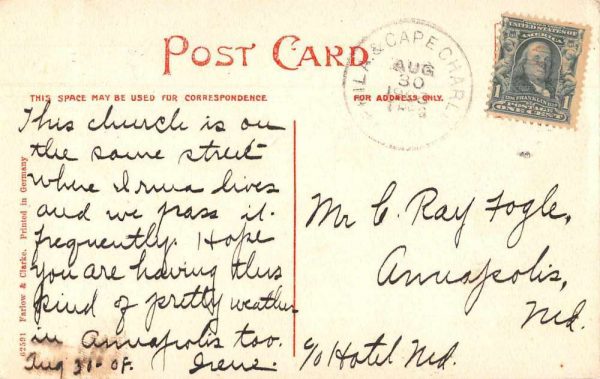 POST CARD
THIS SPACE MAY BE USED FOR CORRESPONDENCE
FOR ADDRESS ONLY.
PHILA. & CAPE CHARL
AUG
30
UNITED STATES OF
AMERICA
FRANKLIN
1 1
POSTAGE
ONE CENT
This church is on
the same street
where Irma lives
and we pass it
frequently. Hope
you are having this
kind of pretty weather
in Annapolis too.
Irene.
Aug 31- 08.
Mr C. Ray Fogle,
Annapolis,
Md.
c/o Hotel Md.
62591 Farlow & Clarke. Printed in Germany